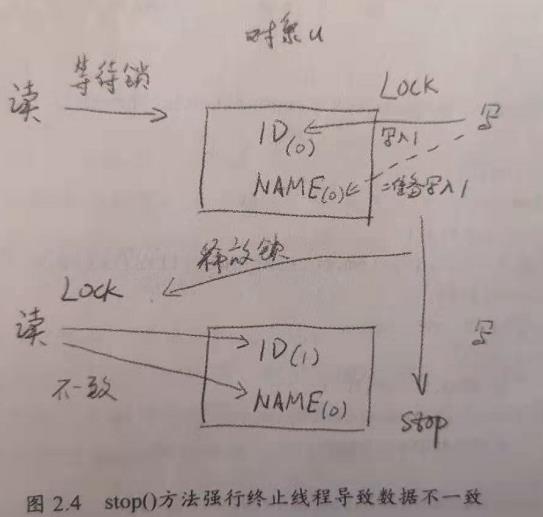 对象u
等待锁
读
LOCK
写
ID(0)
写入1
NAME(0)
准备写入1
释放锁
LOCK
读
ID(1)
写
不一致
NAME(0)
stop
图 2.4 stop()方法强行终止线程导致数据不一致